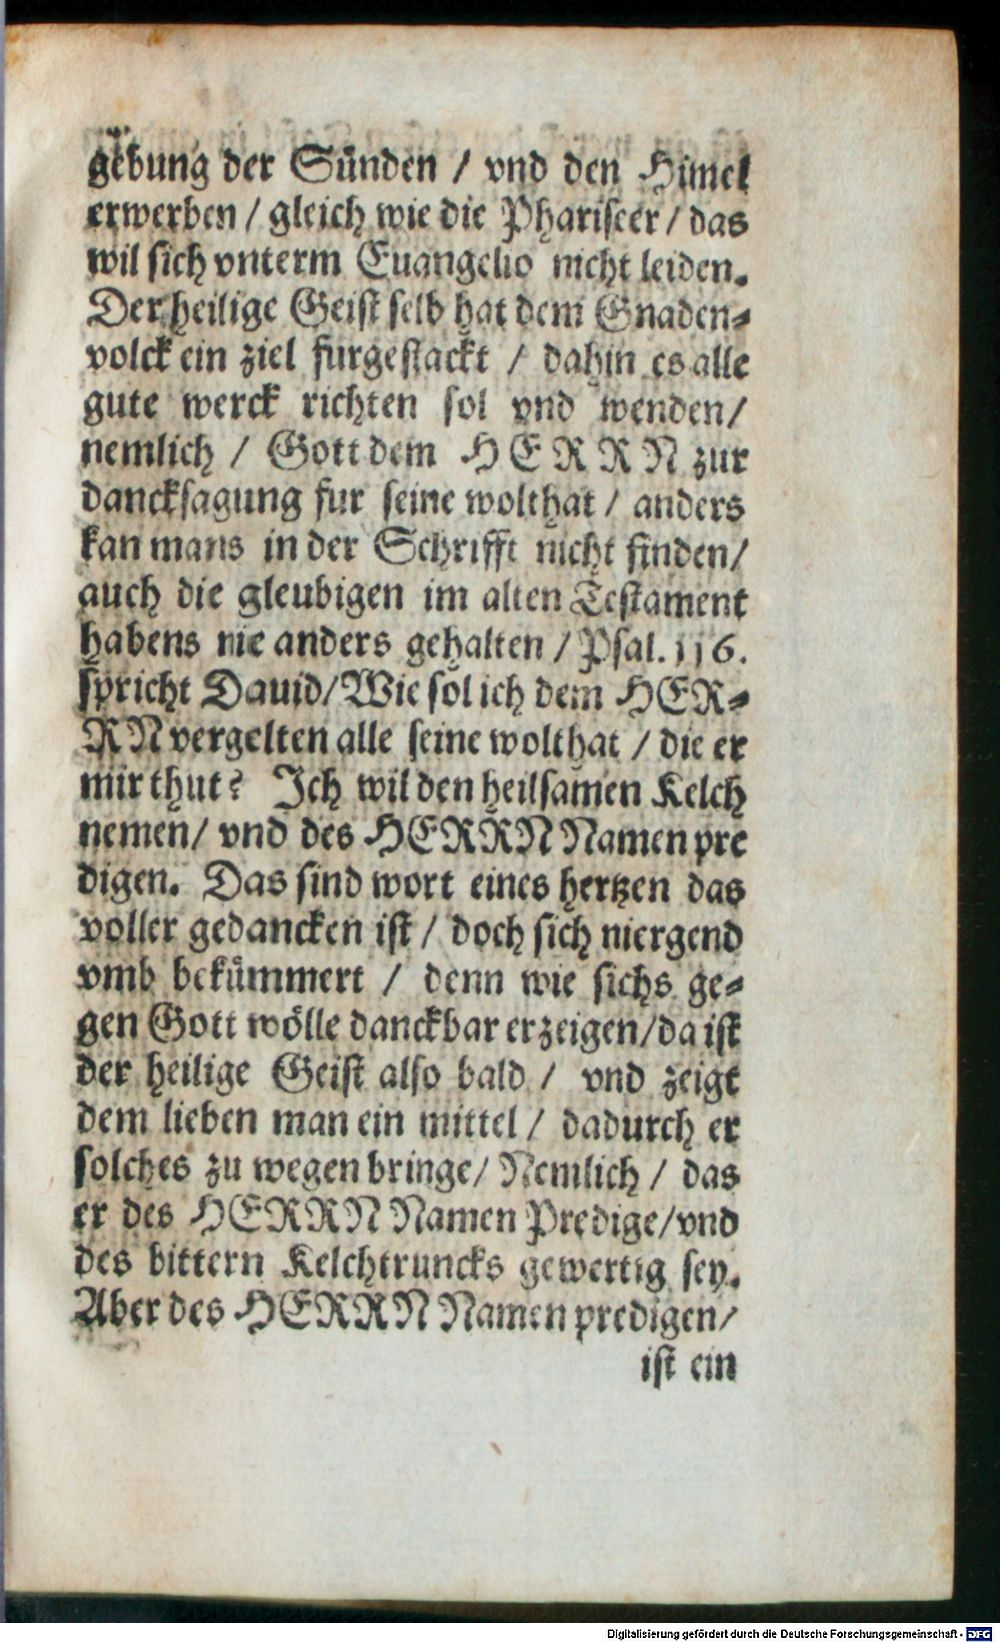 gebung der Sünden / vnd den Himel
erwerben / gleich wie die Phariseer / das
wil sich vnterm Euangelio nicht leiden.
Der heilige Geist selb hat dem Gnaden-
volck ein ziel furgestackt / dahin es alle
gute werck richten sol vnd wenden/
nemlich / Gott dem HERRN zur
dancksagung fur seine wolthat / anders
kan mans in der Schrifft nicht finden/
auch die gleubigen im alten Testament
habens nie anders gehalten / Psal. 116.
spricht Dauid/Wie sol ich dem HER-
RN vergelten alle seine wolthat / die er
mir thut? Ich wil den heilsamen Kelch
nemen/ vnd des HERRN Namen pre
digen. Das sind wort eines hertzen das
voller gedancken ist / doch sich niergend
vmb bekümmert / denn wie sichs ge-
gen Gott wölle danckbar erzeigen/da ist
der heilige Geist also bald / vnd zeigt
dem lieben man ein mittel / dadurch er
solches zu wegen bringe/ Nemlich / das
er des HERRN Namen Predige/vnd
des bittern Kelchtruncks gewertig sey.
Aber des HERRN Namen predigen/
ist ein
Digitalisierung gefördert durch die Deutsche Forschungsgemeinschaft - DFG